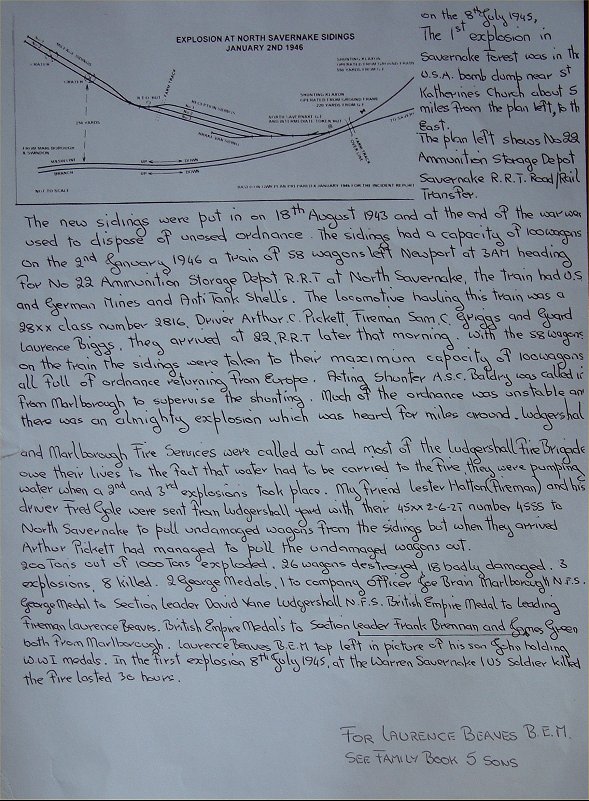 EXPLOSION AT NORTH SAVERNAKE SIDINGS
JANUARY 2ND 1946
CRATER
CRATER
MILEAGE SIDINGS
RECEPTION SIDINGS
SHUNTING KLAXON
OPERATED FROM GROUND FRAME
SHUNTING KLAXON
OPERATED FROM GROUND FRAME
220 YARDS FROM G.F.
NORTH SAVERNAKE G.F.
AND INTERMEDIATE TOKEN HUT
FARM TRACK
FARM TRACK
OVER LINE
FROM MARLBOROUGH
& SWINDON
MAIN LINE
BRANCH
UP
DOWN
UP
DOWN
NOT TO SCALE
on the 8th July 1945,
The 1st explosion in
Savernake forest was in the
U.S.A. bomb dump near St
Katherines Church about 5
miles from the plan left, to th
East.
The plan left shows No 22
Ammunition Storage Depot
Savernake R.R.T. Road/Rail
Transfer.
The new sidings were put in on 18th August 1943 and at the end of the war war
used to dispose of unused ordnance. The sidings had a capacity of 100 wagons
On the 2nd January 1946 a train of 58 wagons left Newport at 3AM heading
for No 22 Ammunition Storage Depot R.R.T at North Savernake, the train had U.S
and German Mines and Anti Tank Shells. The locomotive hauling this train was a
28xx class number 2816, Driver Arthur.C.Pickett, Fireman Sam.C Griggs and Guard
Laurence Biggs, they arrived at 22.R.R.T later that morning, with the 58 wagons
on the train the sidings were taken to their maximum capacity of 100 wagons
all full of ordnance returning from Europe. Acting Shunter A.S.C. Baldry was called in
from Marlborough to supervise the shunting. Much of the ordnance was unstable an
there was an almighty explosion which was heard for miles around. Ludgershal
and Marlborough Fire Services were called out and most of the Ludgershall Fire Brigade
owe their lives to the fact that water had to be carried to the fire they were pumping
water when a 2nd and 3rd explosions took place. My friend Lester Hatton (Fireman) and his
driver Fred Gale were sent from Ludgershall yard with their 45xx 2-6-2T number 4555 to
North Savernake to pull undamaged wagons from the sidings but when they arrived
Arthur Pickett had managed to pull the undamaged wagons out.
200 Tons out of 1000 Tons exploded. 26 wagons destroyed, 18 badly damaged. 3
explosions, 8 killed. 2 George Medals, 1 to company officer Joe Brain Marlborough N.F.S.
George Medal to Section Leader David Vane Ludgershall N.F.S. British Empire Medal to Leading
Fireman Laurence Beaves. British Empire Medals to Section Leader Frank Brennan and James Green
both from Marlborough. Laurence Beaves B.E.M top left in picture of his son John holding
W.W.1 medals. In the first explosion 8th July 1945, at the Warren Savernake 1 US Soldier killed
the fire lasted 30 hours.
FOR LAURENCE BEAVES B.E.M.
SEE FAMILY BOOK 5 SONS